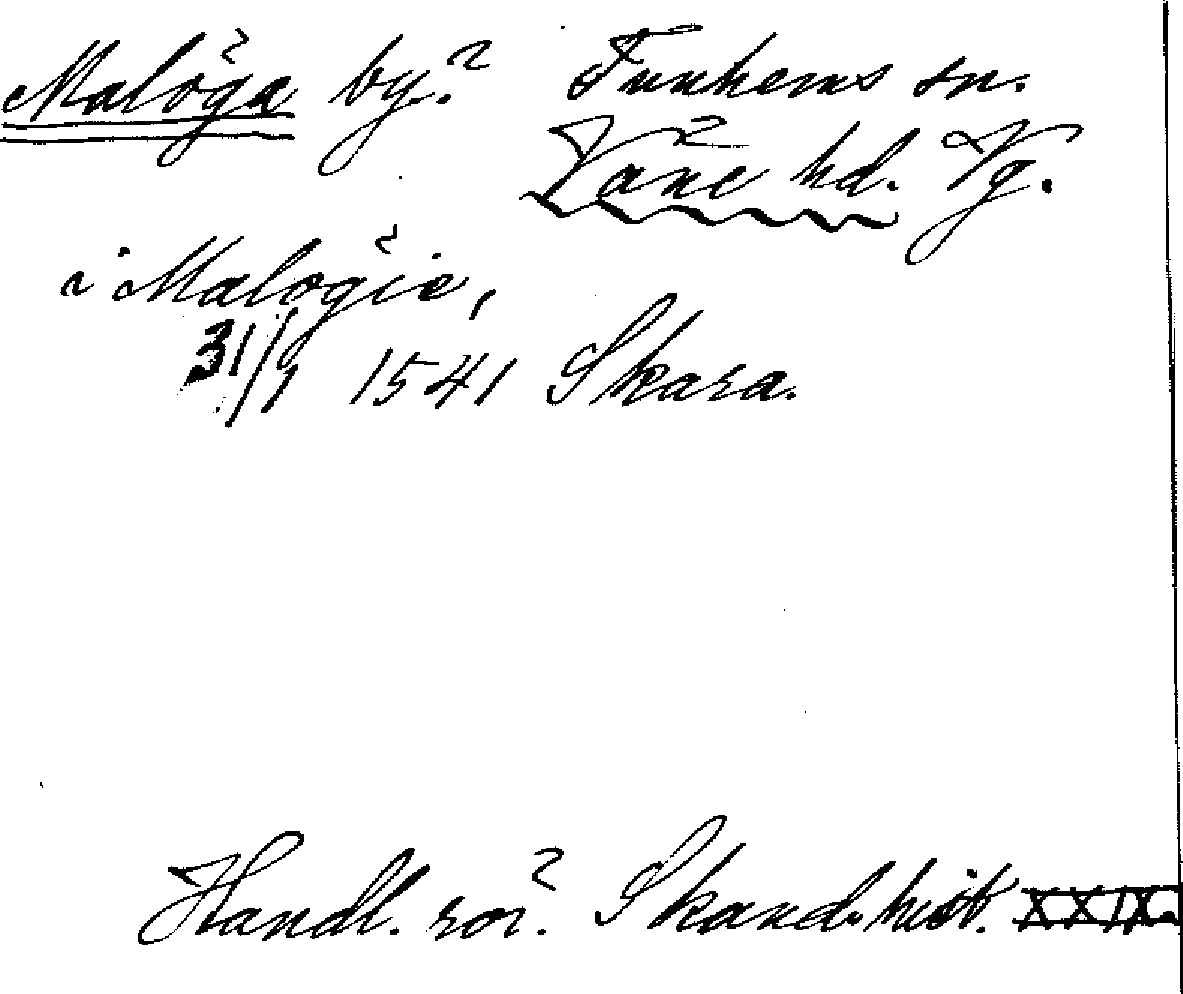 Malöga by. Funhems sn.
Väne hd. Vg.
i Malögie,
31/1 1541 Skara.
Handl. rör. Skand. hist. XXIX.